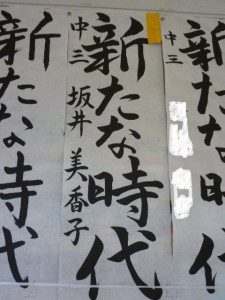 新たな時代
中三
新たな時代
中三 坂井 美香子
新たな時代